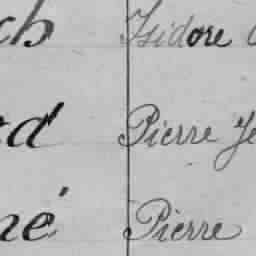 ch Isidore
d Pierre Je
né Pierre